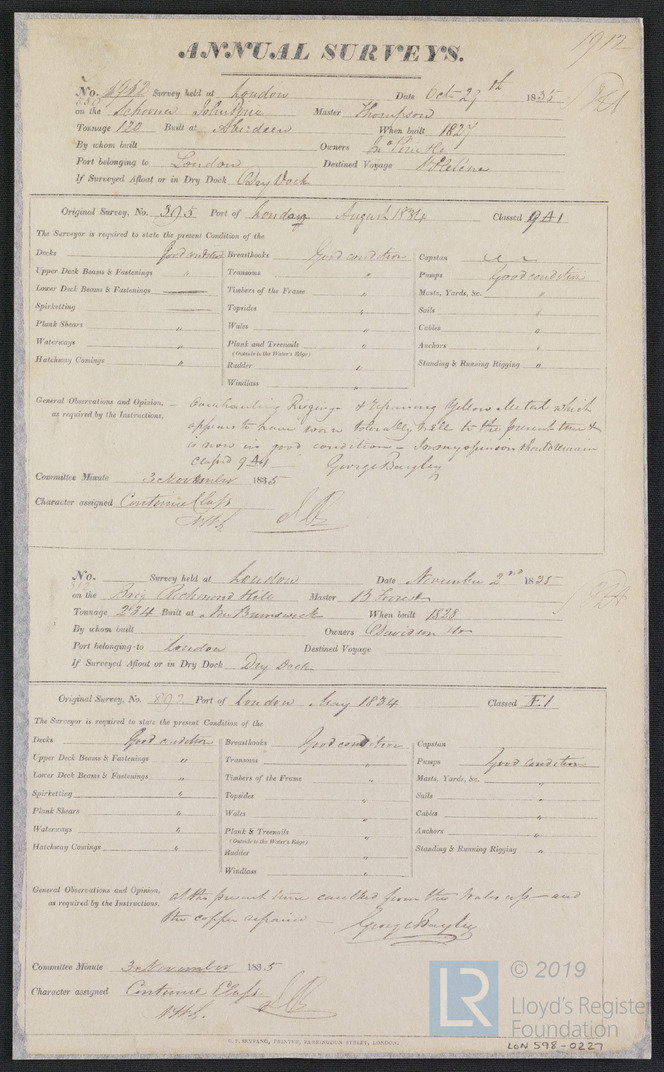 1912
ANNUAL SURVEYS.
No. 1912 Survey held at London Date Octr 29th 1835
on the Schooner John Pirie Master Thompson
Tonnage 120 Built at Aberdeen When built 1827
By whom built Owners Jno Pirie & Co
Port belonging to London Destined Voyage St Helena
If Surveyed Afloat or in Dry Dock Dry Dock
Original Survey, No. 395 Port of London August 1834 Classed 9 A 1
The Surveyor is required to state the present Condition of the
Decks Good condition Breasthooks Good condition Capstan
Upper Deck Beams & Fastenings " Transoms " Pumps Good condition
Lower Deck Beams & Fastenings Timbers of the Frame " Masts, Yards, &c. "
Spirketting Topsides " Sails "
Plank Shears " Wales " Cables "
Waterways " Plank and Treenails " Anchors "
(Outside to the Water's Edge)
Hatchway Comings " Rudder " Standing & Running Rigging "
Windlass "
General Observations and Opinion, Overhauling Rigging & repairing Yellow Metal which
as required by the Instructions. appears to have worn tolerably well to the present time &
is now in good condition - In my opinion should remain
Class'd 9 A1 George Bayley
Committee Minute 3 November 1835
Character assigned Continue Class
No. Survey held at London Date November 2nd 1835
on the Brig Richmond Hill Master B Forrest
Tonnage 234 Built at New Brunswick When built 1828
By whom built Owners Davidson & Co
Port belonging to London Destined Voyage
If Surveyed Afloat or in Dry Dock Dry Dock
Original Survey, No. 892 Port of London May 1834 Classed E.1
The Surveyor is required to state the present Condition of the
Decks Good condition Breasthooks Good condition Capstan
Upper Deck Beams & Fastenings " Transoms " Pumps Good condition
Lower Deck Beams & Fastenings " Timbers of the Frame " Masts, Yards, &c. "
Spirketting " Topsides " Sails "
Plank Shears " Wales " Cables "
Waterways " Plank & Treenails " Anchors "
(Outside to the Water's Edge)
Hatchway Comings " Rudder " Standing & Running Rigging "
Windlass "
General Observations and Opinion, at the present time caulked from the Wales up - and
as required by the Instructions. the copper repaired - George Bayley
Committee Minute 3 November 1835
Character assigned Continue Class
LR © 2019
Lloyd's Register
Foundation
PRINTER, FARRINGDON STREET, LONDON.
LON 598-0227